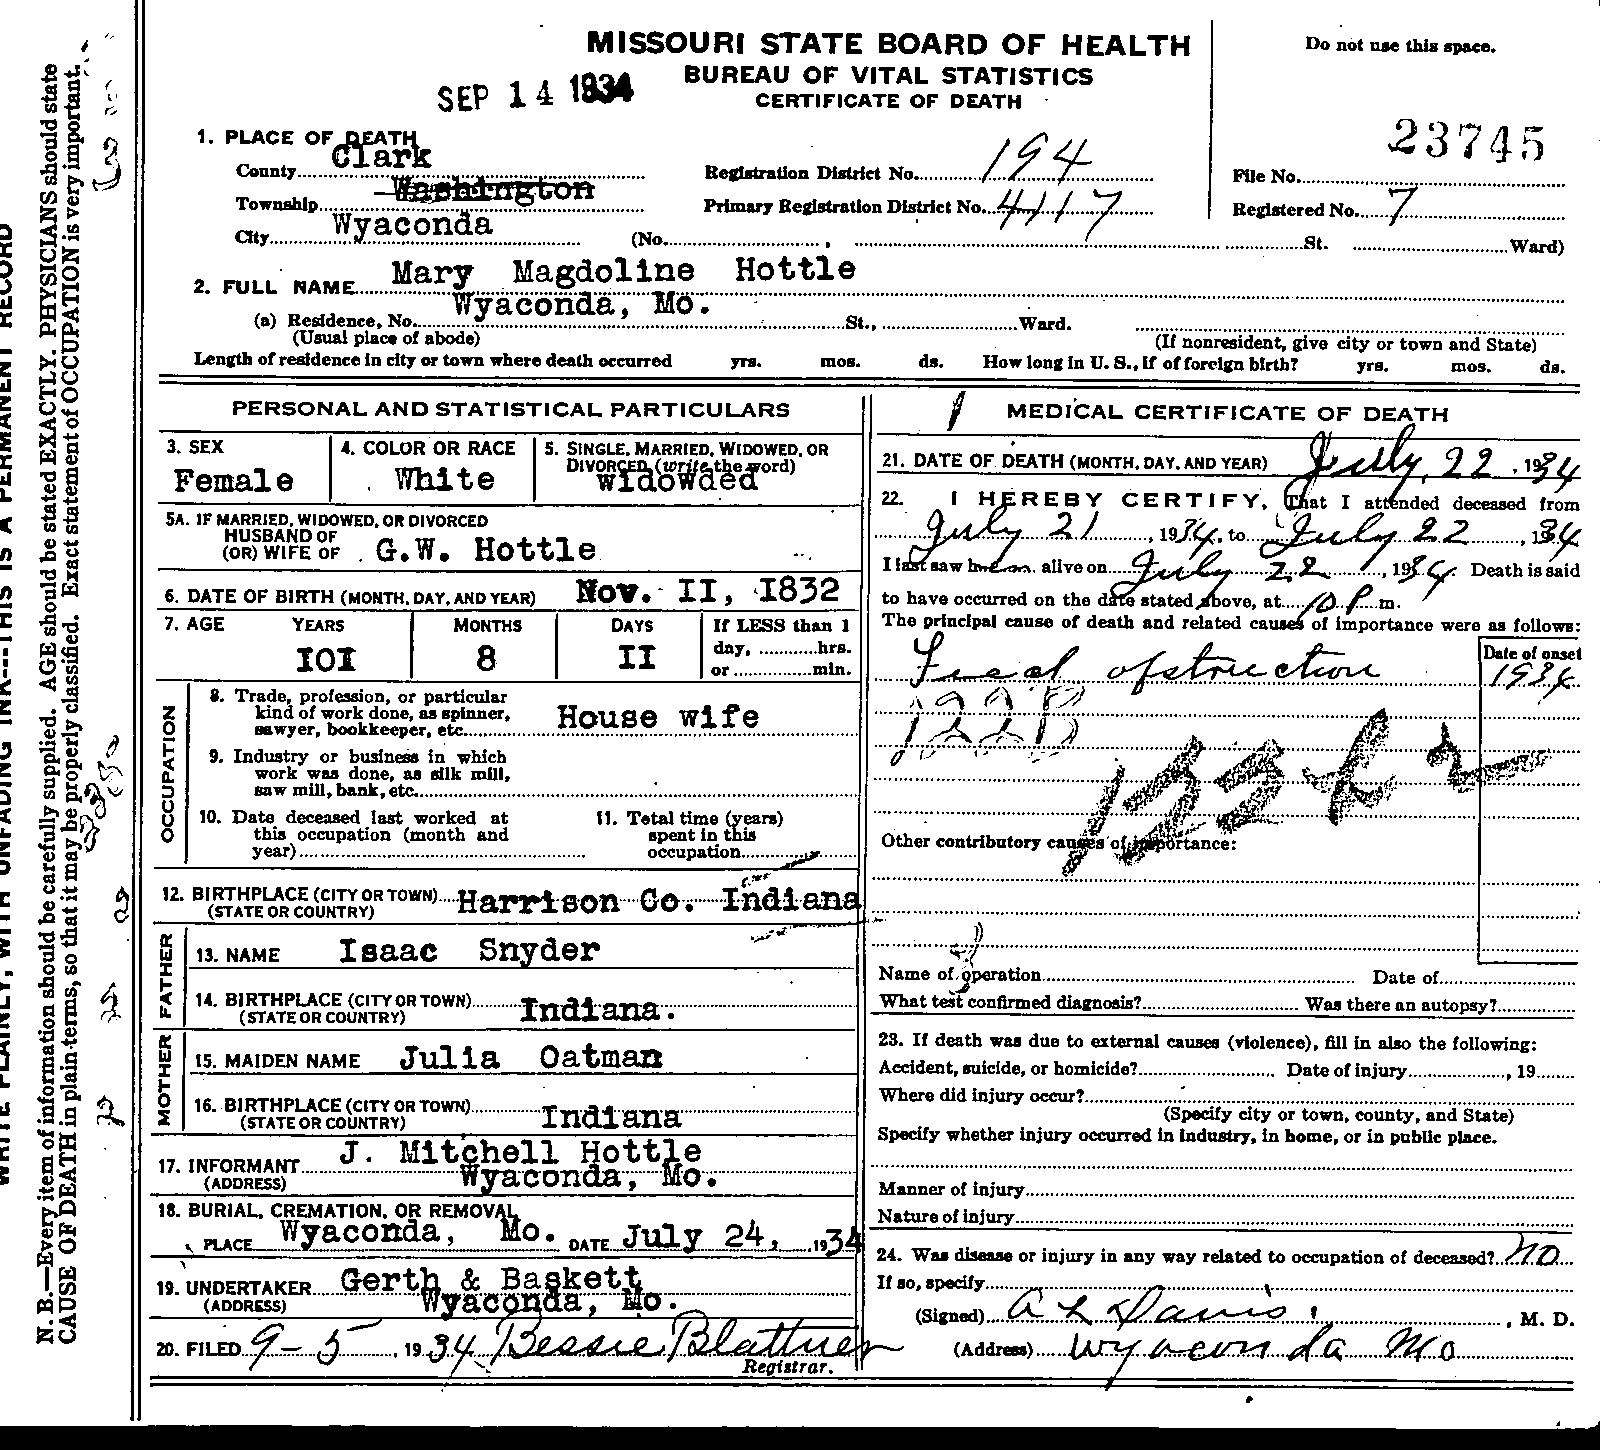 MISSOURI STATE BOARD OF HEALTH
BUREAU OF VITAL STATISTICS
CERTIFICATE OF DEATH
SEP 14 1934
Do not use this space.
23745
1. PLACE OF DEATH
County Clark
Township Washington
City Wyaconda (No. , St. Ward)
Registration District No. 194
Primary Registration District No. 4117
File No.
Registered No. 7
2. FULL NAME Mary Magdoline Hottle
(a) Residence, No. Wyaconda, Mo. St., Ward.
(Usual place of abode) (If nonresident, give city or town and State)
Length of residence in city or town where death occurred yrs. mos. ds. How long in U. S., if of foreign birth? yrs. mos. ds.
PERSONAL AND STATISTICAL PARTICULARS
3. SEX
Female
4. COLOR OR RACE
White
5. SINGLE, MARRIED, WIDOWED, OR DIVORCED (write the word)
widowded
5A. IF MARRIED, WIDOWED, OR DIVORCED
HUSBAND OF
(OR) WIFE OF G.W. Hottle
6. DATE OF BIRTH (MONTH, DAY, AND YEAR) Nov. II, 1832
7. AGE YEARS MONTHS DAYS If LESS than 1
IOI 8 II day, hrs.
or min.
OCCUPATION
8. Trade, profession, or particular
kind of work done, as spinner,
sawyer, bookkeeper, etc. House wife
9. Industry or business in which
work was done, as silk mill,
saw mill, bank, etc.
10. Date deceased last worked at
this occupation (month and
year)
11. Total time (years)
spent in this
occupation
12. BIRTHPLACE (CITY OR TOWN) Harrison Co. Indiana
(STATE OR COUNTRY)
FATHER
13. NAME Isaac Snyder
14. BIRTHPLACE (CITY OR TOWN) Indiana.
(STATE OR COUNTRY)
MOTHER
15. MAIDEN NAME Julia Oatman
16. BIRTHPLACE (CITY OR TOWN) Indiana
(STATE OR COUNTRY)
17. INFORMANT J. Mitchell Hottle
(ADDRESS) Wyaconda, Mo.
18. BURIAL, CREMATION, OR REMOVAL
PLACE Wyaconda, Mo. DATE July 24, 1934
19. UNDERTAKER Gerth & Baskett
(ADDRESS) Wyaconda, Mo.
20. FILED 9-5, 1934 Bessie Blattner
Registrar.
MEDICAL CERTIFICATE OF DEATH
21. DATE OF DEATH (MONTH, DAY, AND YEAR) July, 22, 1934
22. I HEREBY CERTIFY, That I attended deceased from
July 21, 1934, to July 22, 1934
I last saw h alive on July 22, 1934. Death is said
to have occurred on the date stated above, at 10 P. m.
The principal cause of death and related causes of importance were as follows:
Date of onset
Fecal obstruction 1934
122B
122
Other contributory causes of importance:
Name of operation Date of
What test confirmed diagnosis? Was there an autopsy?
23. If death was due to external causes (violence), fill in also the following:
Accident, suicide, or homicide? Date of injury , 19
Where did injury occur?
(Specify city or town, county, and State)
Specify whether injury occurred in industry, in home, or in public place.
Manner of injury
Nature of injury
24. Was disease or injury in any way related to occupation of deceased? No
If so, specify
(Signed) A L Davis, M. D.
(Address) Wyaconda Mo
WRITE PLAINLY, WITH UNFADING INK---THIS IS A PERMANENT RECORD
N. B.—Every item of information should be carefully supplied. AGE should be stated EXACTLY. PHYSICIANS should state
CAUSE OF DEATH in plain terms, so that it may be properly classified. Exact statement of OCCUPATION is very important.